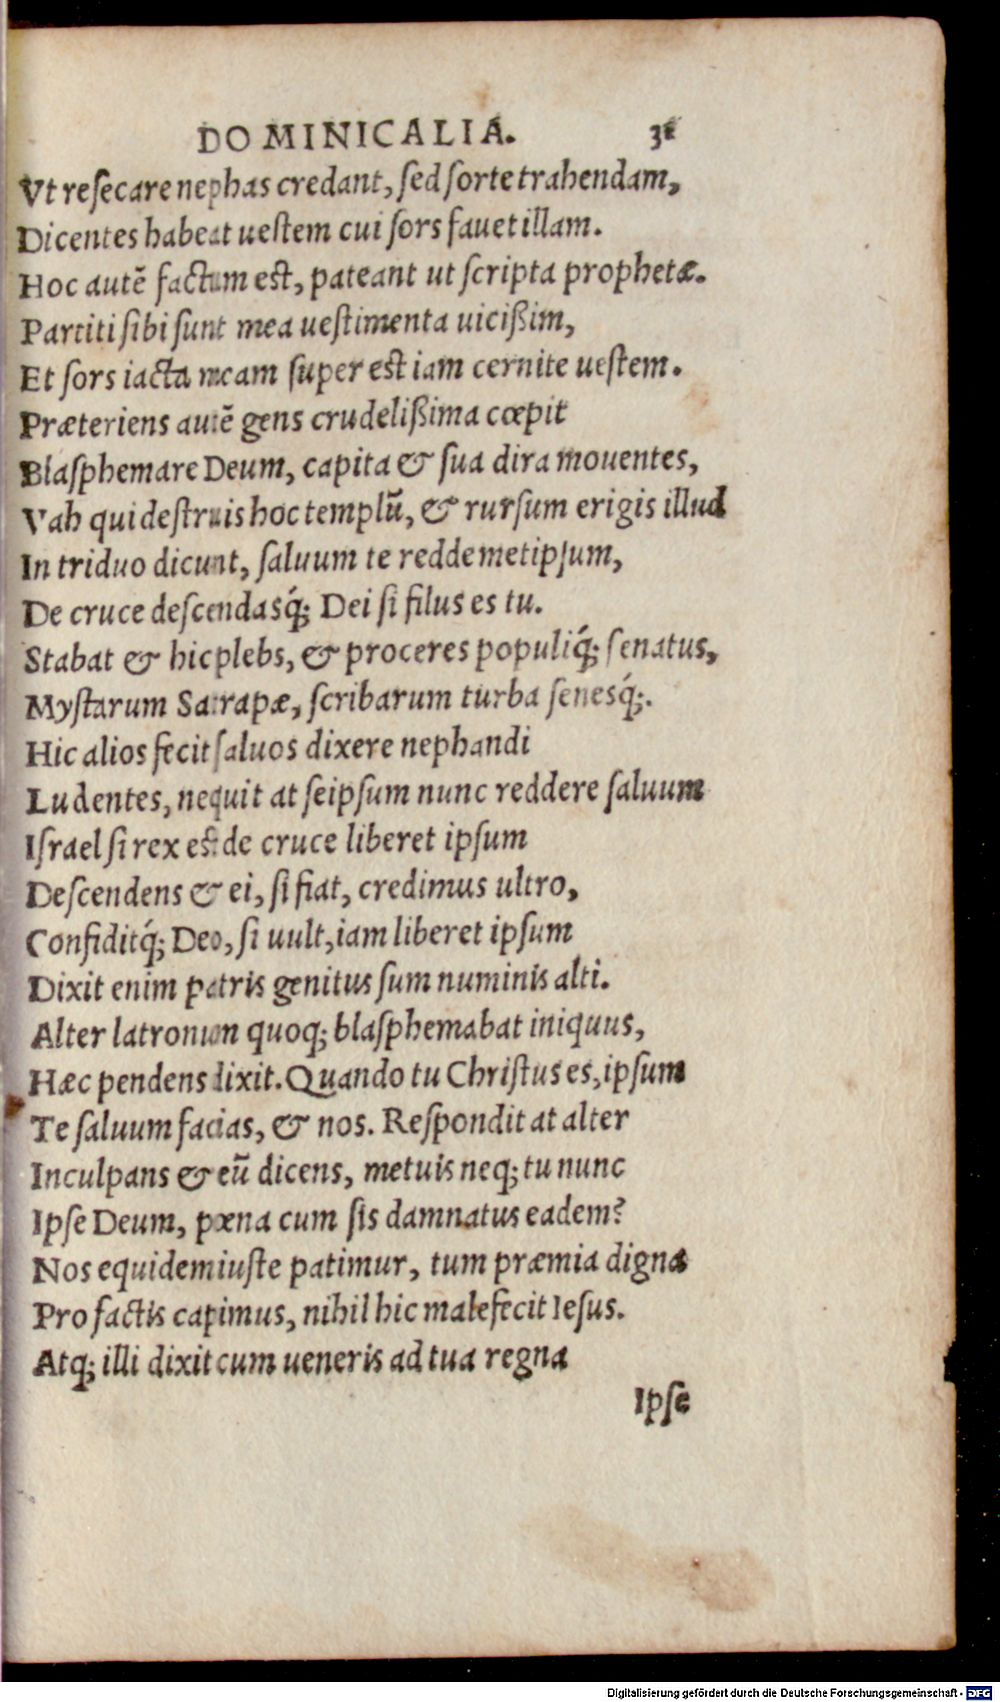 DOMINICALIA.
Vt reſecare nephas credant, ſed ſorte trahendam,
Dicentes habeat ueſtem cui ſors fauet illam.
Hoc autẽ factum eſt, pateant ut ſcripta prophetæ.
Partiti ſibi ſunt mea ueſtimenta uicißim,
Et ſors iacta meam ſuper eſt iam cernite ueſtem.
Præteriens autẽ gens crudelißima cœpit
Blaſphemare Deum, capita & ſua dira mouentes,
Vah qui deſtruis hoc templũ, & rurſum erigis illud
In triduo dicunt, ſaluum te redde metipſum,
De cruce deſcendasq́; Dei ſi filus es tu.
Stabat & hic plebs, & proceres populiq́; ſenatus,
Myſtarum Satrapæ, ſcribarum turba ſenesq́;.
Hic alios fecit ſaluos dixere nephandi
Ludentes, nequit at ſeipſum nunc reddere ſaluum
Iſrael ſi rex eſt de cruce liberet ipſum
Deſcendens & ei, ſi fiat, credimus ultro,
Confiditq́; Deo, ſi uult, iam liberet ipſum
Dixit enim patris genitus ſum numinis alti.
Alter latronum quoq; blaſphemabat iniquus,
Hæc pendens dixit. Quando tu Chriſtus es, ipſum
Te ſaluum facias, & nos. Reſpondit at alter
Inculpans & eũ dicens, metuis neq; tu nunc
Ipſe Deum, pœna cum ſis damnatus eadem?
Nos equidem iuſte patimur, tum præmia digna
Pro factis capimus, nihil hic malefecit Ieſus.
Atq; illi dixit cum ueneris ad tua regna
Ipſe
Digitalisierung gefördert durch die Deutsche Forschungsgemeinschaft - DFG